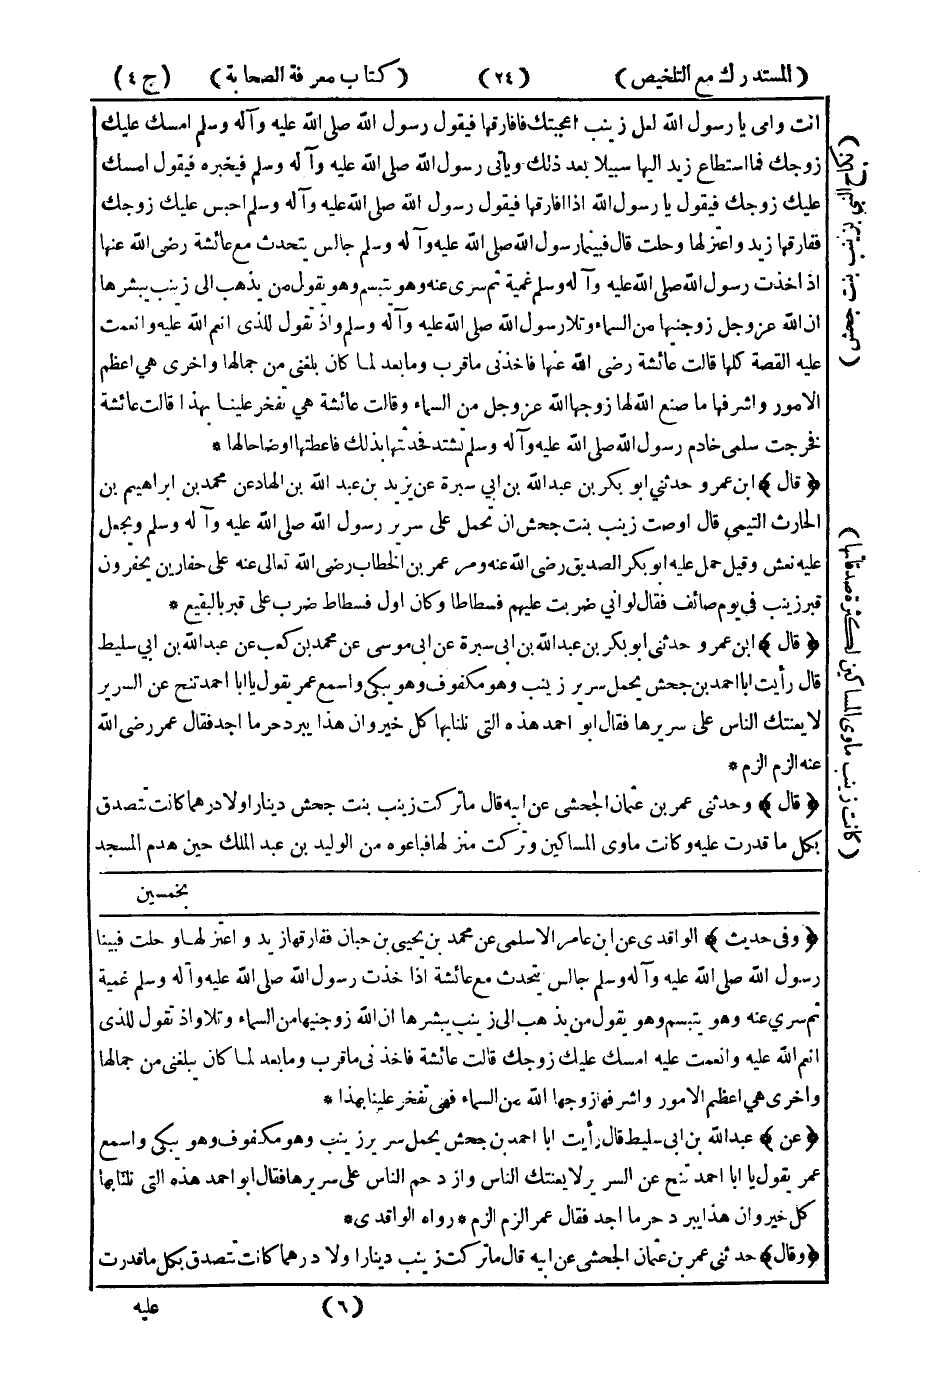 (المستدرك مع التلخيص) (٢٤) (كتاب معرفة الصحابة) (ج ٤)
انت وامى يا رسول الله لعل زينب اعجبتك فافارقها فيقول رسول الله صلى الله عليه وآله وسلم امسك عليك
زوجك فما استطاع زيد اليها سبيلا بعد ذلك ويأتى رسول الله صلى الله عليه وآله وسلم فيخبره فيقول امسك
عليك زوجك فيقول يا رسول الله اذا افارقها فيقول رسول الله صلى الله عليه وآله وسلم احبس عليك زوجك
ففارقها زيد واعتزلها وحلت قال فبينما رسول الله صلى الله عليه وآله وسلم جالس يتحدث مع عائشة رضى الله عنها
اذ اخذت رسول الله صلى الله عليه وآله وسلم غمية ثم سرى عنه وهو يتبسم وهو يقول من يذهب الى زينب يبشرها
ان الله عز وجل زوجنيها من السماء وتلا رسول الله صلى الله عليه وآله وسلم واذ تقول للذى انعم الله عليه وانعمت
عليه القصة كلها قالت عائشة رضى الله عنها فاخذنى ما قرب وما بعد لما كان بلغنى من جمالها واخرى هي اعظم
الامور واشرفها ما صنع الله لها زوجها الله عز وجل من السماء وقالت عائشة هي تفخر علينا بهذا قالت عائشة
فخرجت سلمى خادم رسول الله صلى الله عليه وآله وسلم تشتد فحدثتها بذلك فاعطتها اوضاحا لها *
﴿ قال ﴾ ابن عمر و حدثني ابو بكر بن عبدالله بن ابي سبرة عن يزيد بن عبد الله بن الهاد عن محمد بن ابراهيم بن
الحارث التيمي قال اوصت زينب بنت جحش ان تحمل على سرير رسول الله صلى الله عليه وآله وسلم ويجعل
عليه نعش وقيل حمل عليه ابو بكر الصديق رضى الله عنه ومر عمر بن الخطاب رضى الله تعالى عنه على حفارين يحفرون
قبر زينب في يوم صائف فقال لو اني ضربت عليهم فسطاطا وكان اول فسطاط ضرب على قبر بالبقيع *
﴿ قال ﴾ ابن عمر و حدثنى ابو بكر بن عبدالله بن ابى سبرة عن ابى موسى عن محمد بن كعب عن عبدالله بن ابي سليط
قال رأيت ابا احمد بن جحش يحمل سرير زينب وهو مكفوف وهو يبكي واسمع عمر يقول يا ابا احمد تنح عن السرير
لا يعنتك الناس على سريرها فقال ابو احمد هذه التى نلنا بها كل خير وان هذا يبرد حر ما اجد فقال عمر رضى الله
عنه الزم الزم *
﴿ قال ﴾ وحدثنى عمر بن عثمان الجحشى عن ابيه قال ما تركت زينب بنت جحش دينارا ولا درهما كانت تتصدق
بكل ما قدرت عليه وكانت ماوى المساكين وتركت منزلها فباعوه من الوليد بن عبد الملك حين هدم المسجد
بخمسين
﴿ وفى حديث ﴾ الواقدى عن ابن عامر الاسلمى عن محمد بن يحيى بن حبان ففارقها زيد و اعتزلها وحلت فبينا
رسول الله صلى الله عليه وآله وسلم جالس يتحدث مع عائشة اذا خذت رسول الله صلى الله عليه وآله وسلم غمية
ثم سري عنه وهو يتبسم وهو يقول من يذهب الى زينب يبشرها ان الله زوجنيها من السماء وتلا واذ تقول للذى
انعم الله عليه وانعمت عليه امسك عليك زوجك قالت عائشة فاخذنى ما قرب وما بعد لما كان يبلغنى من جمالها
واخرى هي اعظم الامور واشرفها زوجها الله من السماء فهى تفخر علينا بهذا *
﴿ عن ﴾ عبدالله بن ابى سليط قال رأيت ابا احمد بن جحش يحمل سرير زينب وهو مكفوف وهو يبكي واسمع
عمر يقول يا ابا احمد تنح عن السرير لا يعنتك الناس وازدحم الناس على سريرها فقال ابو احمد هذه التى نلنا بها
كل خير وان هذا يبرد حر ما اجد فقال عمر الزم الزم * رواه الواقدى *
﴿ وقال ﴾ حدثني عمر بن عثمان الجحشى عن ابيه قال ما تركت زينب دينارا ولا درهما كانت تتصدق بكل ما قدرت
(٦) عليه
زينب بنت جحش)
(كانت زينب ماوى المساكين لكثرة صدقاتها)